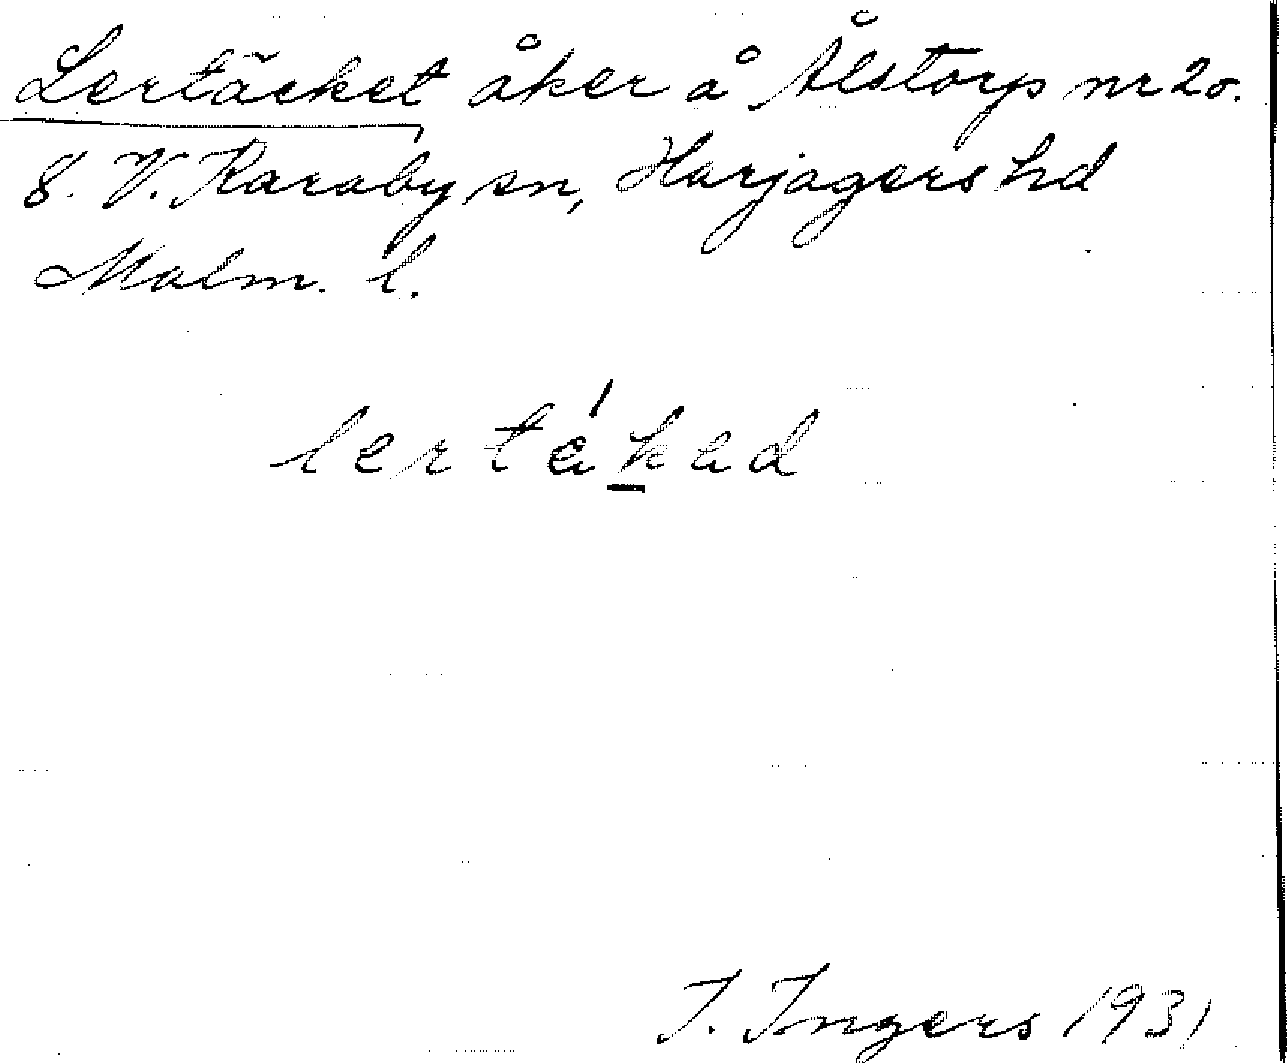 Lertäcket åker å Ålstorps nr 20.
8. V. Karaby sn, Harjagers hd
Malm. l.
lertäkad
I. Ingers 1931